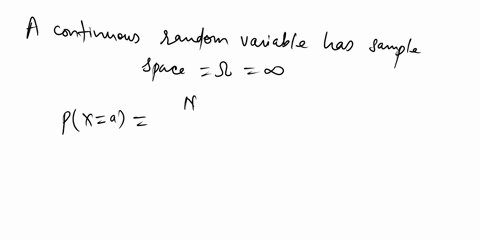 A continuous random variable has sample
space = Ω = ∞
N
P(X=a) =